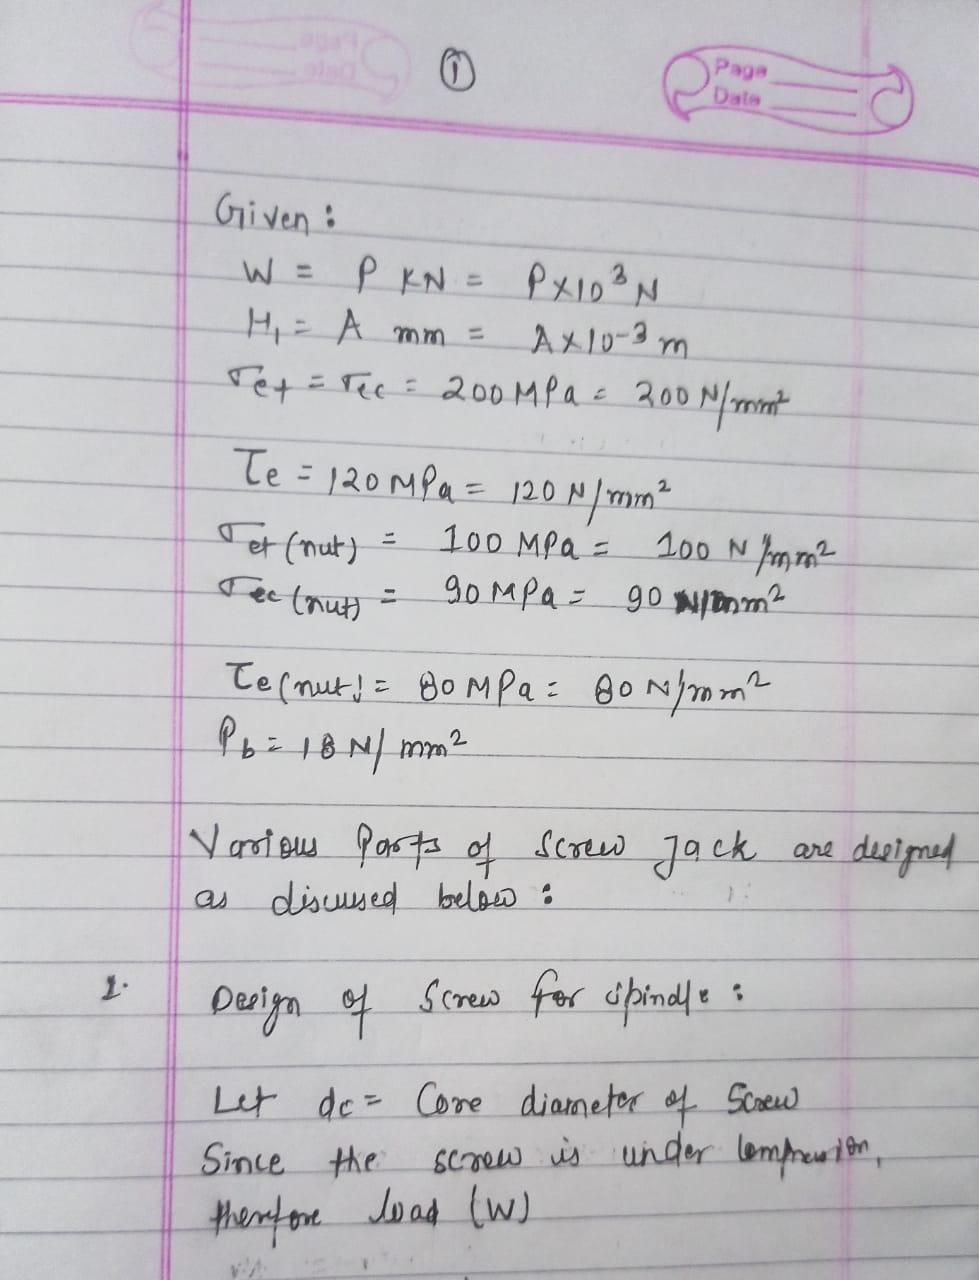 ①
Page
Date
Given :
W = P KN = P×10³ N
H₁ = A mm = A×10-3 m
σet = σec = 200 MPa = 200 N/mm²
τe = 120 MPa = 120 N/mm²
σet (nut) = 100 MPa = 100 N/mm²
σec (nut) = 90 MPa = 90 N/mm²
τe (nut) = 80 MPa = 80 N/mm²
Pb = 18 N/mm²
Various Parts of Screw Jack are designed
as discused below :
1. Design of Screw for spindle :
Let dc = Core diameter of Screw
Since the screw is under Compression,
therefore load (W)